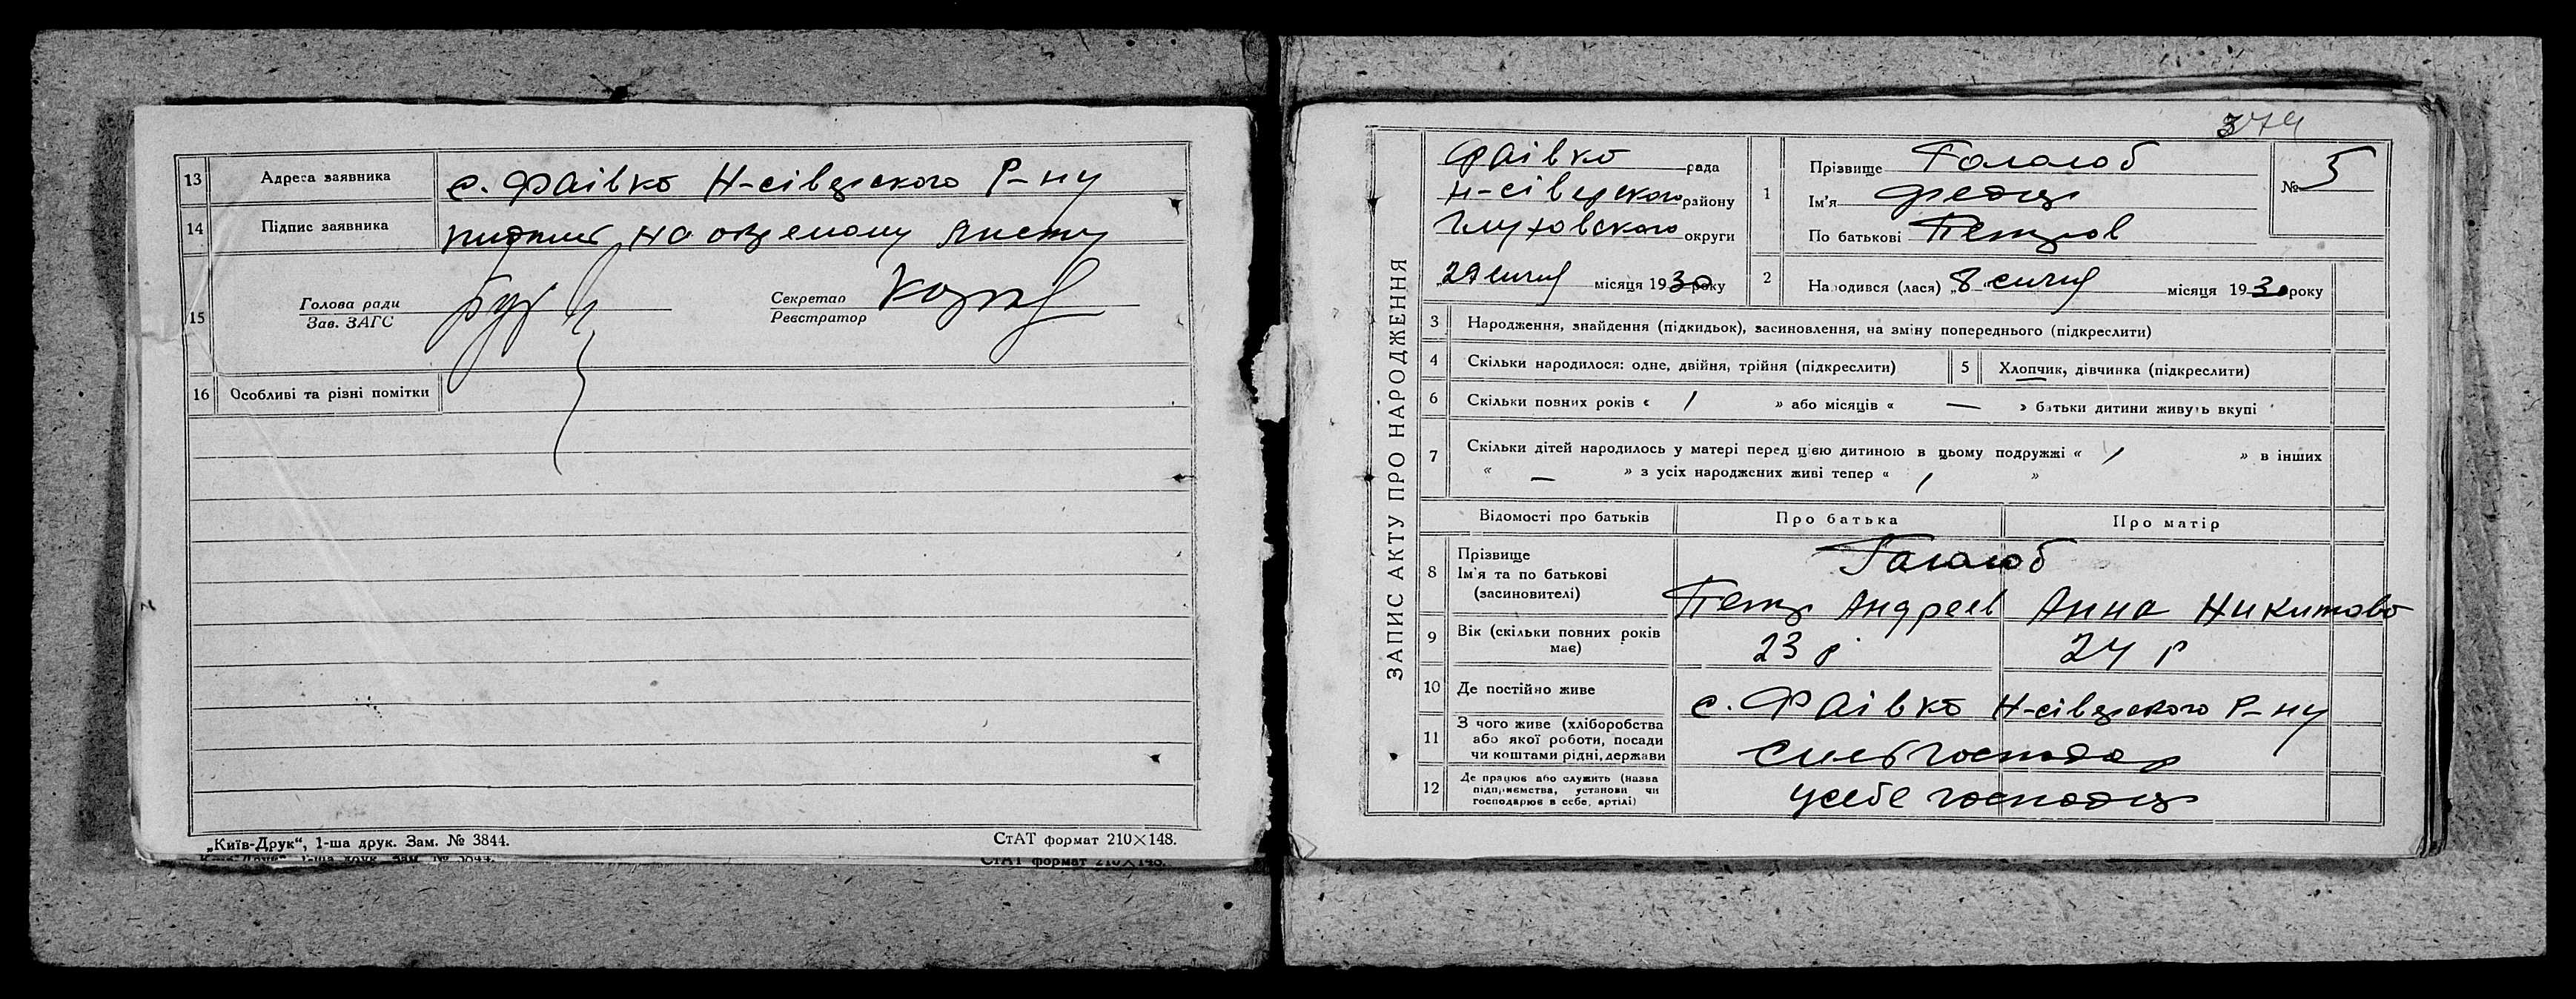 13 Адреса заявника с. Фаівка Н-сіверского Р-ну
14 Підпис заявника на окремому листу
15 Голова ради
Зав. ЗАГС
Секретар
Реєстратор
16 Особливі та різні помітки
„Київ-Друк“, 1-ша друк. Зам. № 3844.
СтАТ формат 210×148.
374
ЗАПИС АКТУ ПРО НАРОДЖЕННЯ
Фаівка рада
Н-сіверского району
Глуховского округи
„29 січня місяця 1930 року
1 Прізвище Гололоб
Ім'я Федір
По батькові Петров
№ 5
2 Народився (лася) „8 січня місяця 1930 року
3 Народження, знайдення (підкидьок), засиновлення, на зміну попереднього (підкреслити)
4 Скільки народилося: одне, двійня, трійня (підкреслити)
5 Хлопчик, дівчинка (підкреслити)
6 Скільки повних років « 1 » або місяців « — » батьки дитини живуть вкупі
7 Скільки дітей народилось у матері перед цією дитиною в цьому подружжі « 1 » в інших
« — » з усіх народжених живі тепер « 1 »
Відомості про батьків Про батька Про матір
8 Прізвище Гололоб
Ім'я та по батькові
(засиновителі) Петр Андреев Анна Никитова
9 Вік (скільки повних років
має) 23 р 24 р
10 Де постійно живе с. Фаівка Н-сіверского Р-ну
11 З чого живе (хліборобства
або якої роботи, посади
чи коштами рідні, держави
12 Де працює або служить (назва
підприємства, установи чи
господарює в себе, артілі) у себе